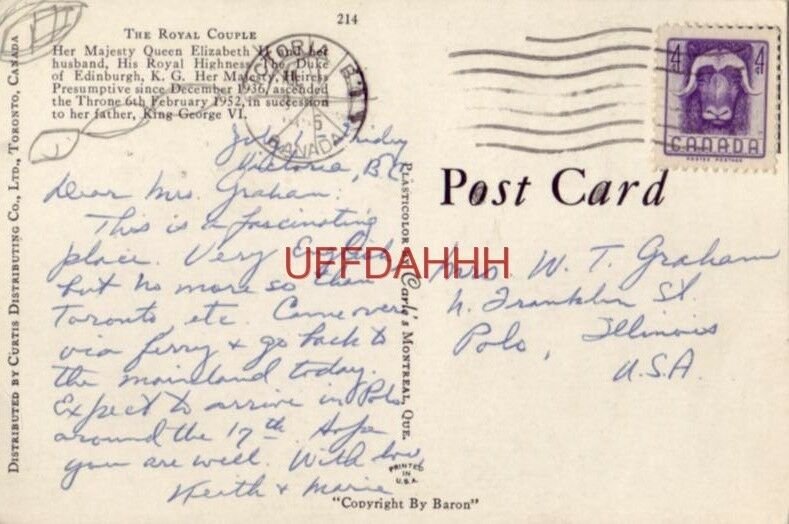 214
THE ROYAL COUPLE
Her Majesty Queen Elizabeth II and her
husband, His Royal Highness The Duke
of Edinburgh, K. G. Her Majesty, Heiress
Presumptive since December 1936, ascended
the Throne 6th February 1952, in succession
to her father, King George VI.
VICTORIA
B.C.
CANADA
4¢ 4¢
CANADA
POSTES POSTAGE
Friday
Victoria, B.C.
Dear Mrs. Graham:
This is a fascinating
place. Very English
but no more so than
Toronto etc. Came over
via ferry & go back to
the mainland today.
Expect to arrive in Polo
around the 17th. Hope
you are well. With love
Keith & Marie
UFFDAHHH
Post Card
Mrs. W. T. Graham
N. Franklin St.
Polo, Illinois
U.S.A.
DISTRIBUTED BY CURTIS DISTRIBUTING CO., LTD., TORONTO, CANADA
PLASTICOLOR Carle's MONTREAL, QUE.
PRINTED
IN
U.S.A.
"Copyright By Baron"